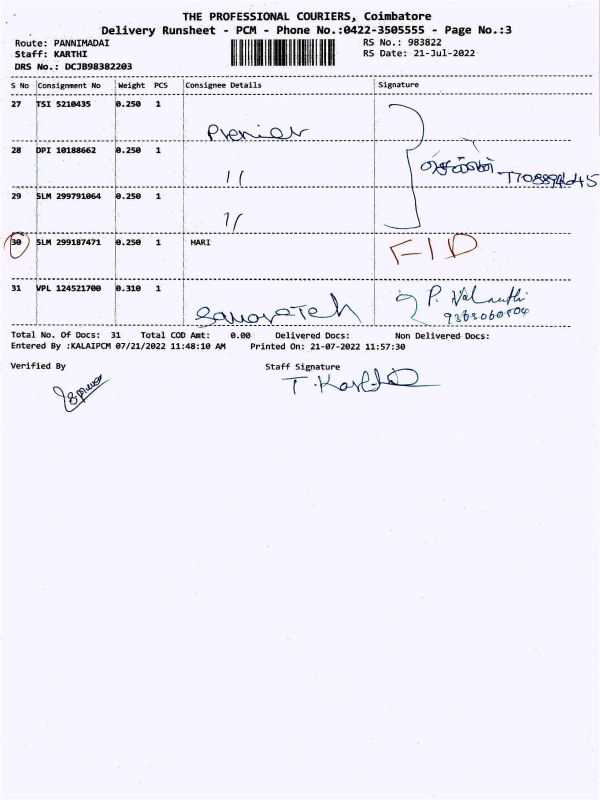 THE PROFESSIONAL COURIERS, Coimbatore
Delivery Runsheet - PCM - Phone No.:0422-3505555 - Page No.:3
Route: PANNIMADAI RS No.: 983822
Staff: KARTHI RS Date: 21-Jul-2022
DRS No.: DCJB98382203
S No Consignment No Weight PCS Consignee Details Signature
27 TSI 5210435 0.250 1
Premier
28 DPI 10188662 0.250 1
"
29 SLM 299791064 0.250 1
"
30 SLM 299187471 0.250 1 HARI FID
31 VPL 124521700 0.310 1 P.
Total No. Of Docs: 31 Total COD Amt: 0.00 Delivered Docs: Non Delivered Docs:
Entered By :KALAIPCM 07/21/2022 11:48:10 AM Printed On: 21-07-2022 11:57:30
Verified By Staff Signature
T.